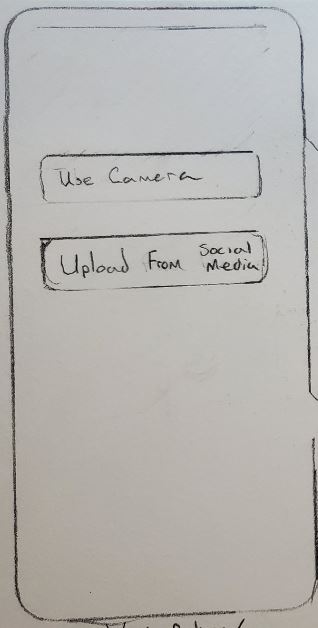 Use Camera
Upload From Social
Media